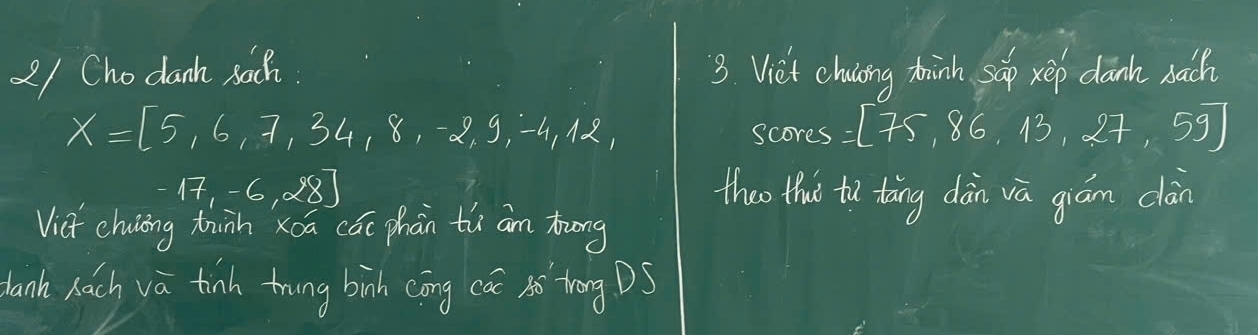 2/ Cho danh sách:
X = [5, 6, 7, 34, 8, -2, 9, -4, 12,
-17, -6, 28]
Viết chương trình xoá các phần tử âm trong
danh sách và tính trung bình cộng các số trong DS
3. Viết chương trình sắp xếp danh sách
scores = [75, 86, 13, 27, 59]
theo thứ tự tăng dần và giảm dần